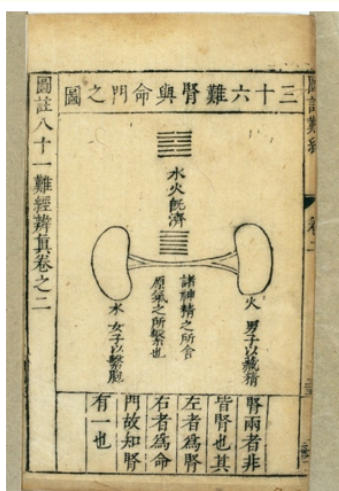 圖註難經
卷二
三十六難腎與命門之圖
水火旣濟
火 男子以藏精
諸神精之所舍
原氣之所繫也
水 女子以繫胞
腎兩者非
皆腎也其
左者爲腎
右者爲命
門故知腎
有一也
圖註八十一難經辨眞卷之二